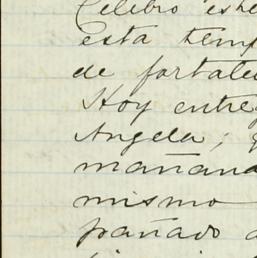 Celebro este
esta temp
de fortale
Hoy entre
Angela; q
mañana
mismo
pañado a